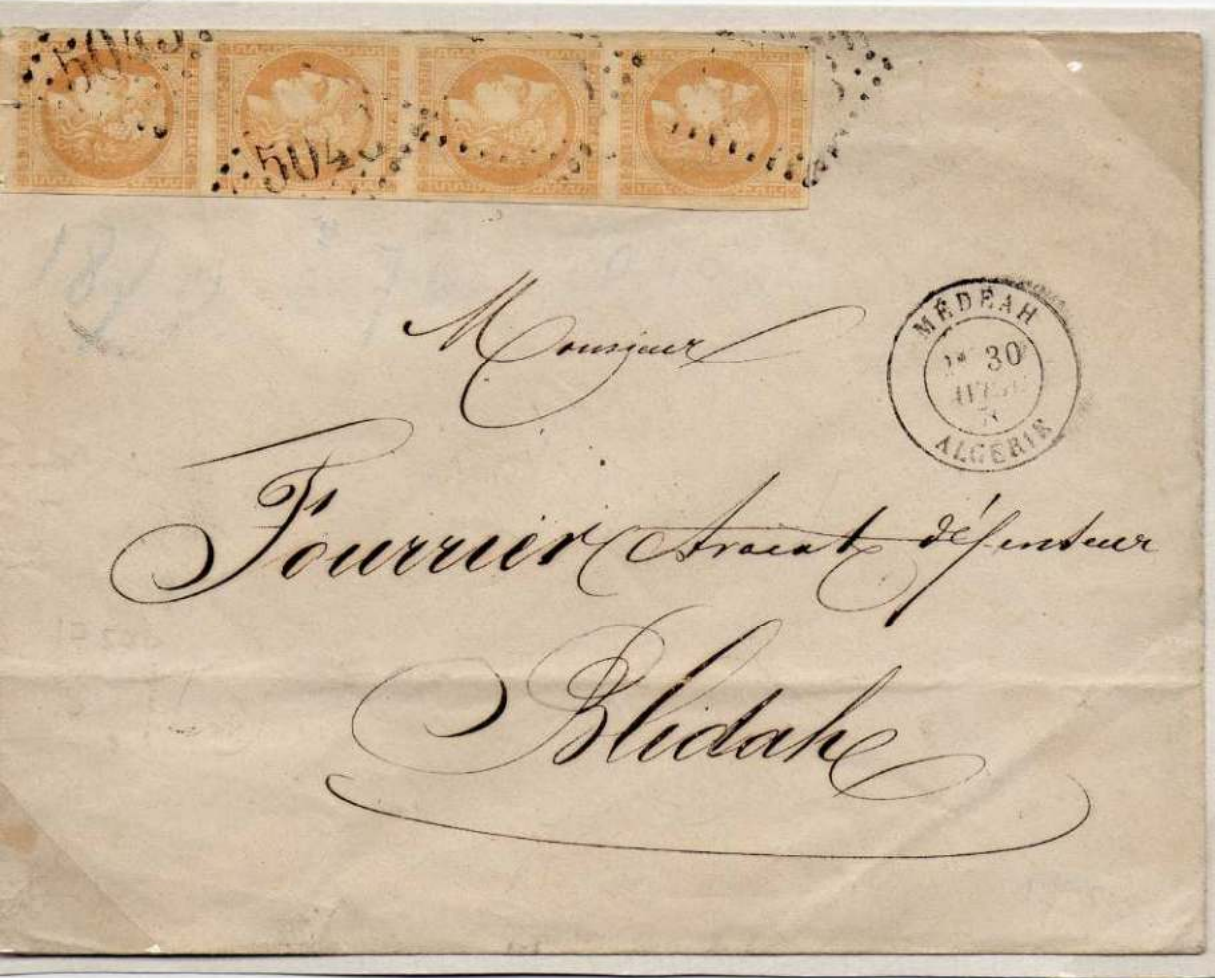 5043
504
MÉDÉAH
30
ALGERIE
Monsieur
Fourrier Avocat défenseur
Blidah